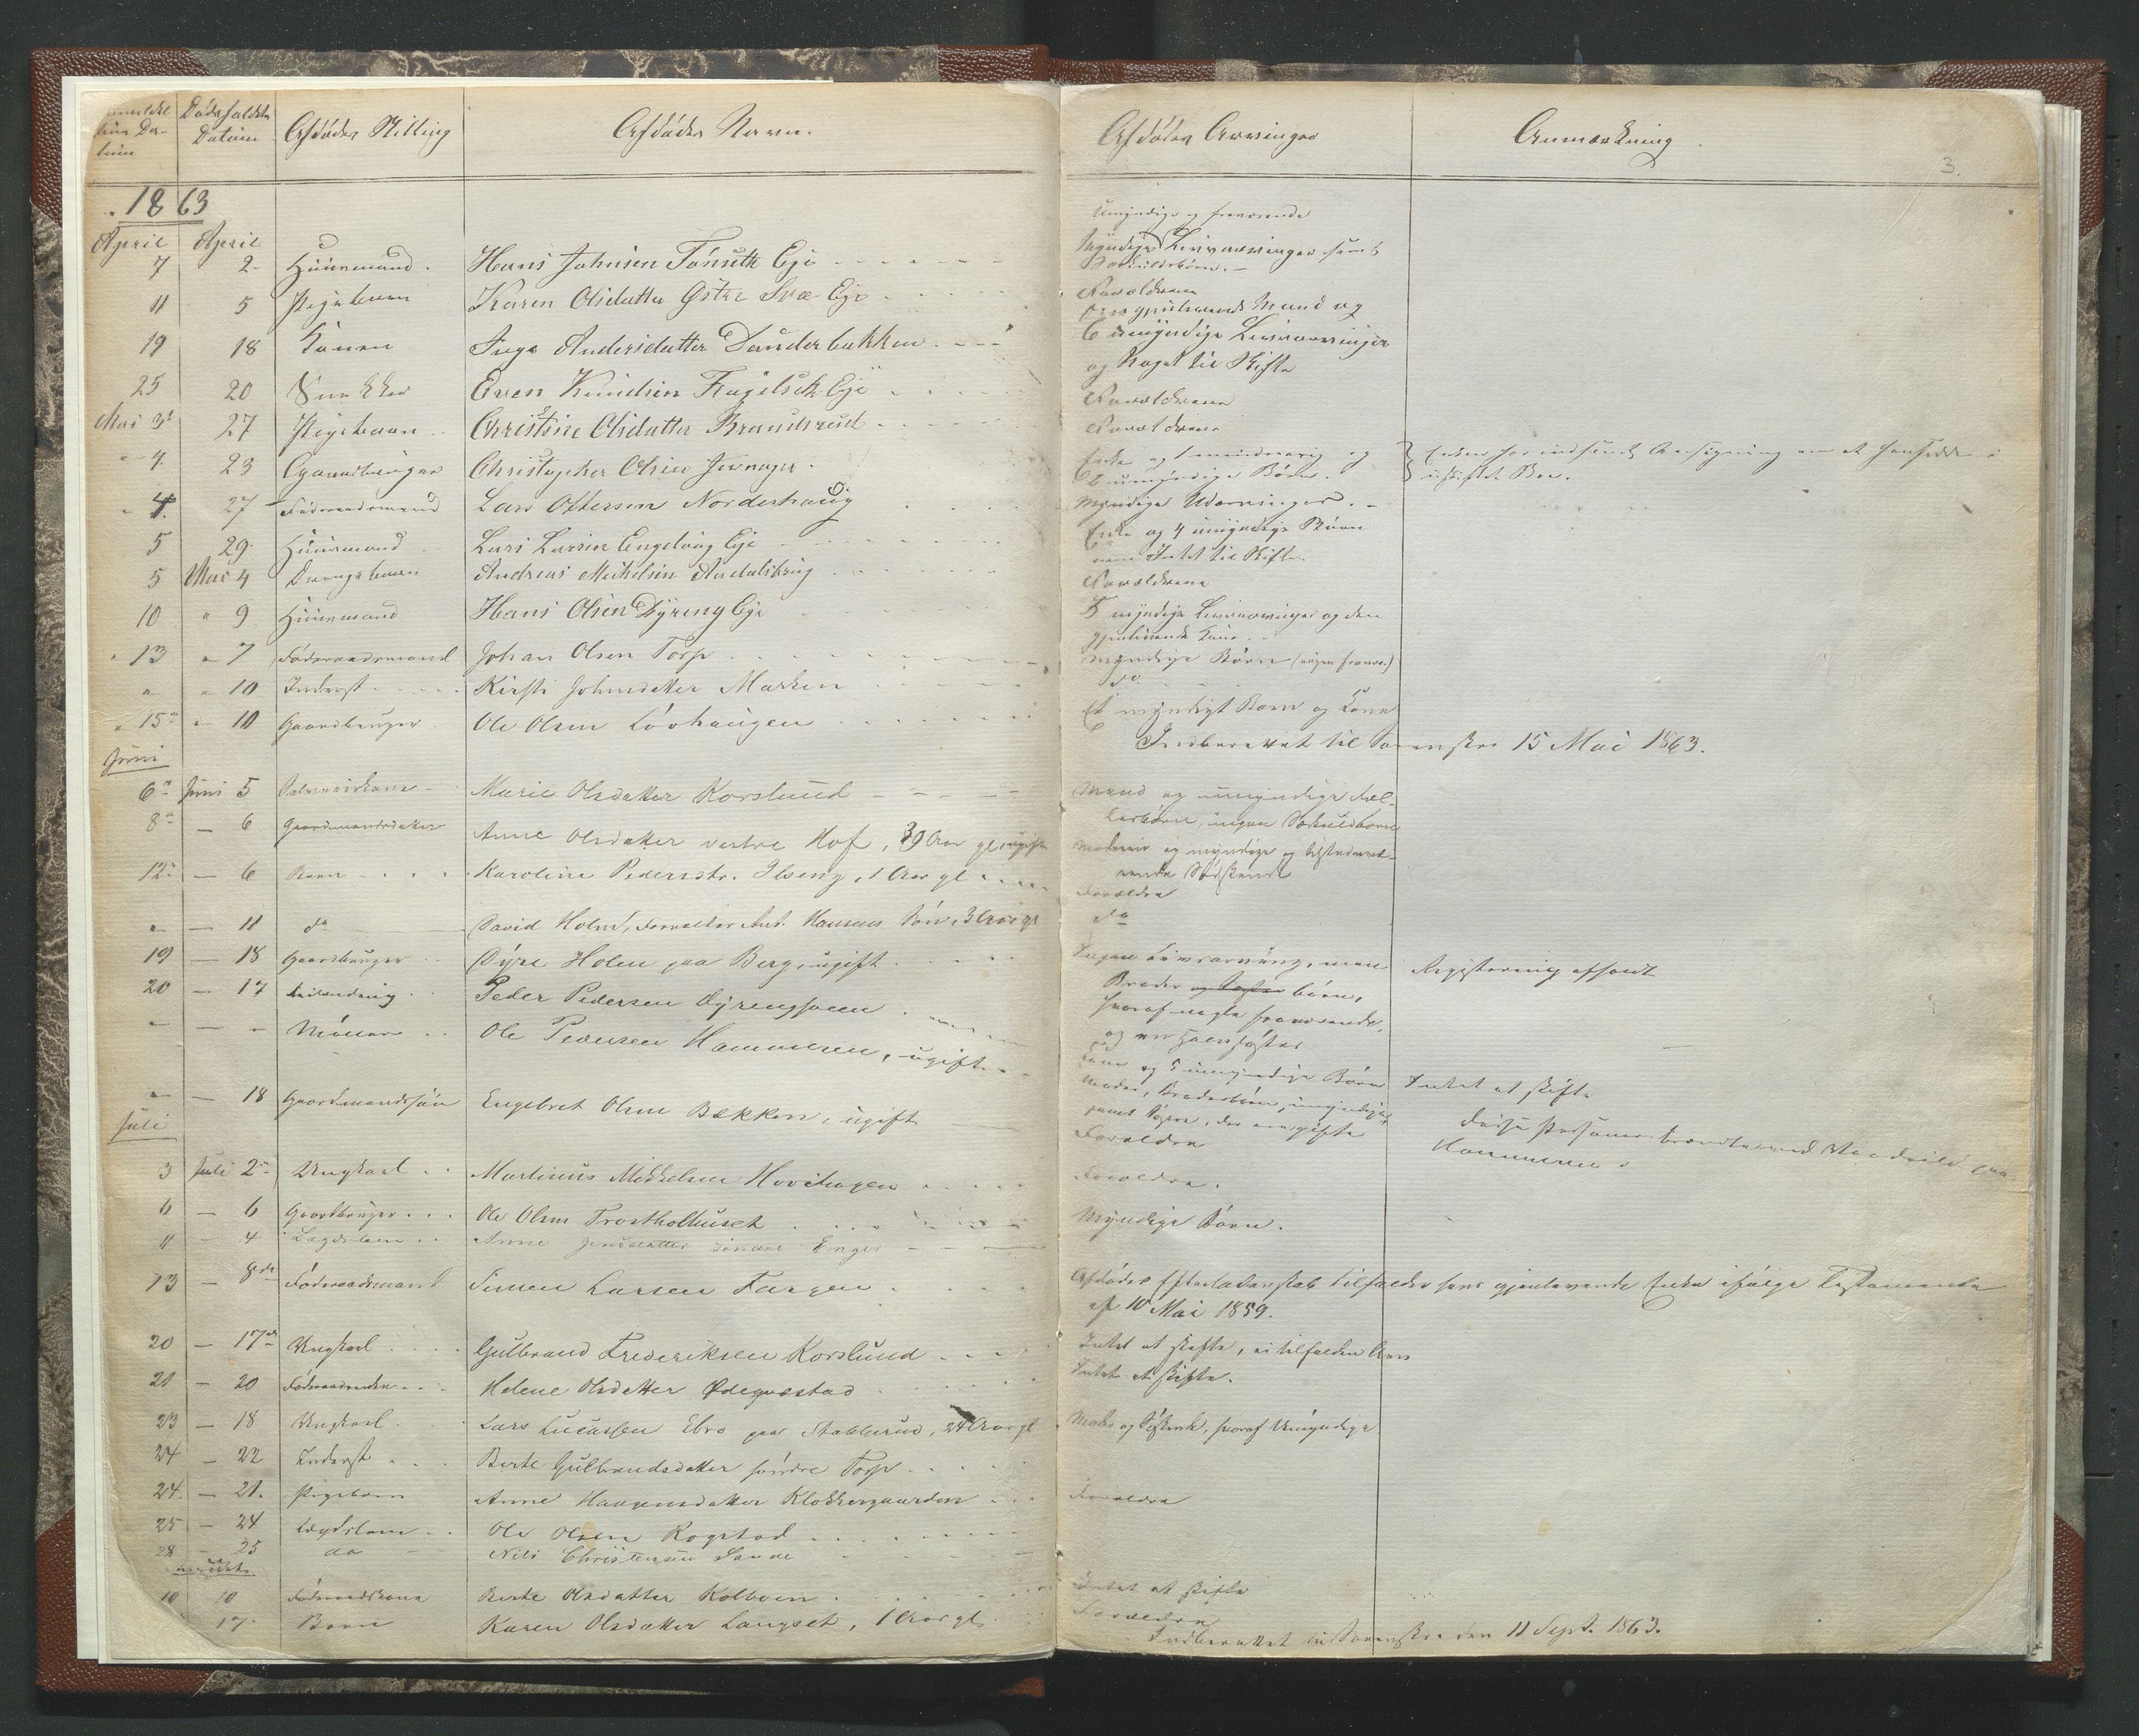 Dødsfaldets
Datum
Afdødes Stilling
Afdødes Navn.
Afdødes Arvinger
Anmærkning
3.
1863
April April
Umyndige og fraværende
7 2 Huusmand. Hans Johnsen Tønseth Eje
Myndige Livsarvinger samt
Særkuldsbørn.
11 5 Pigebarn Karen Olsdatter Østre Eje
Forældrene
gjenlevende Mand og
19 18 Konen Inge Andersdatter Dunderbakken
6 umyndige Livsarvinger
og Noget til Skifte
25 20 Even Knudsen Eje
Forældrene
Mai 3d 27 Pigebarn Christine Olsdatter Brandsrud
Forældrene
4. 23 Gaardbruger Christopher Olsen
Enke og 1 mindreaarig og
6 umyndige Børn.
Enken har indsendt Ansøgning om at hensidde i
uskiftet Boe.
4. 27 Føderaadsmand Lars Ottersen Norderhaug
Myndige Udarvinger.
5 29 Huusmand Lars Larsen Engelaug Eje
Enke og 4 umyndige Børn
men Intet til Skifte.
5 Mai 4 Drengebarn Andreas Mikelsen
Forældrene
10 " 9 Huusmand Hans Olsen Dyreng Eje
5 myndige Livsarvinger og den
gjenlevende Kone.
13 " 7 Føderaadsmand Johan Olsen Torp
myndige Børn (ingen fravær.)
" " 10 Inderst Kirsti Johnsdatter Marken
do
15 " 10 Gaardbruger Ole Olsen Løvhaugen
Et myndigt Barn og Kone
Indberettet til Sorenskr 15 Mai 1863.
Juni
6 Juni 5 Marie Olsdatter Korslund
Mand og umyndige Fæl-
lesbørn, ingen Særkuldbørn
8 — 6 Gaardmandsdatter Anne Olsdatter vestre Hof, 39 Aar gl. ugift
Moderen og myndige og
Sødskende
12 — 6 Barn Karoline Pedersdtr. Ilseng, 1 Aar gl
Forældre
" — 11 do David Holm, Forvalter Ant. Hansens Søn, 3 Aar gl
do
19 — 18 Gaardbruger Dyre Holen paa Berg, ugift
Ingen Livsarving, men
Broder og Søster børn,
hvoraf nogle fraværende,
og en Halvsøster
Registrering afholdt
20 — 17 Peder Pedersen Dyrengshaven
Kone og 5 umyndige Børn
Intet at skifte
" — " Ole Pedersen Hammeren, ugift
Moder, Broderbørn, umyndige,
samt Søstre, der ere gifte
Disse Personer brændte ved Vaadeild paa
Hammeren
" — 18 Gaardmandssøn Engebret Olsen Bækken, ugift
Forældre
Juli
3 Juli 2 Ungkarl Martinus Mikkelsen Hovihagen
Forældre.
6 — 6 Gaardbruger Ole Olsen Frostholthuset
Myndige Børn.
11 — 4 Lægdslem Anne Jensdatter søndre Enger
13 — 8de Føderaadsmand Simen Larsen Fargen
Afdødes Efterladenskab tilfalder hans gjenlevende Enke ifølge Testamente
af 10 Mai 1859.
20 — 17de Ungkarl Gulbrand Frederiksen Korslund
Intet at skifte, ei tilfalden Arv
21 — 20 Føderaadsenke Helene Olsdatter Ødegvestad
Intet at skifte.
23 — 18 Ungkarl Lars Lucassen Ebro paa Stabberud, 24 Aar gl
Moder og Søskende, hvoraf Umyndige
24 — 22 Inderst Berte Gulbrandsdatter søndre Torp
24. — 21. Pigebarn Anne Haagensdatter Klokkergaarden
Forældre
25 — 24 Lægdslem Ole Olsen Rogstad
28 — 25 do Nils Christensen Sande
August
10 10 Føderaadskone Berte Olsdatter Kolboen
Intet at skifte
17. Barn Karen Olsdatter Langset, 1 Aar gl.
Forældre
Indberettet til Sorenskr. den 11 Sept. 1863.